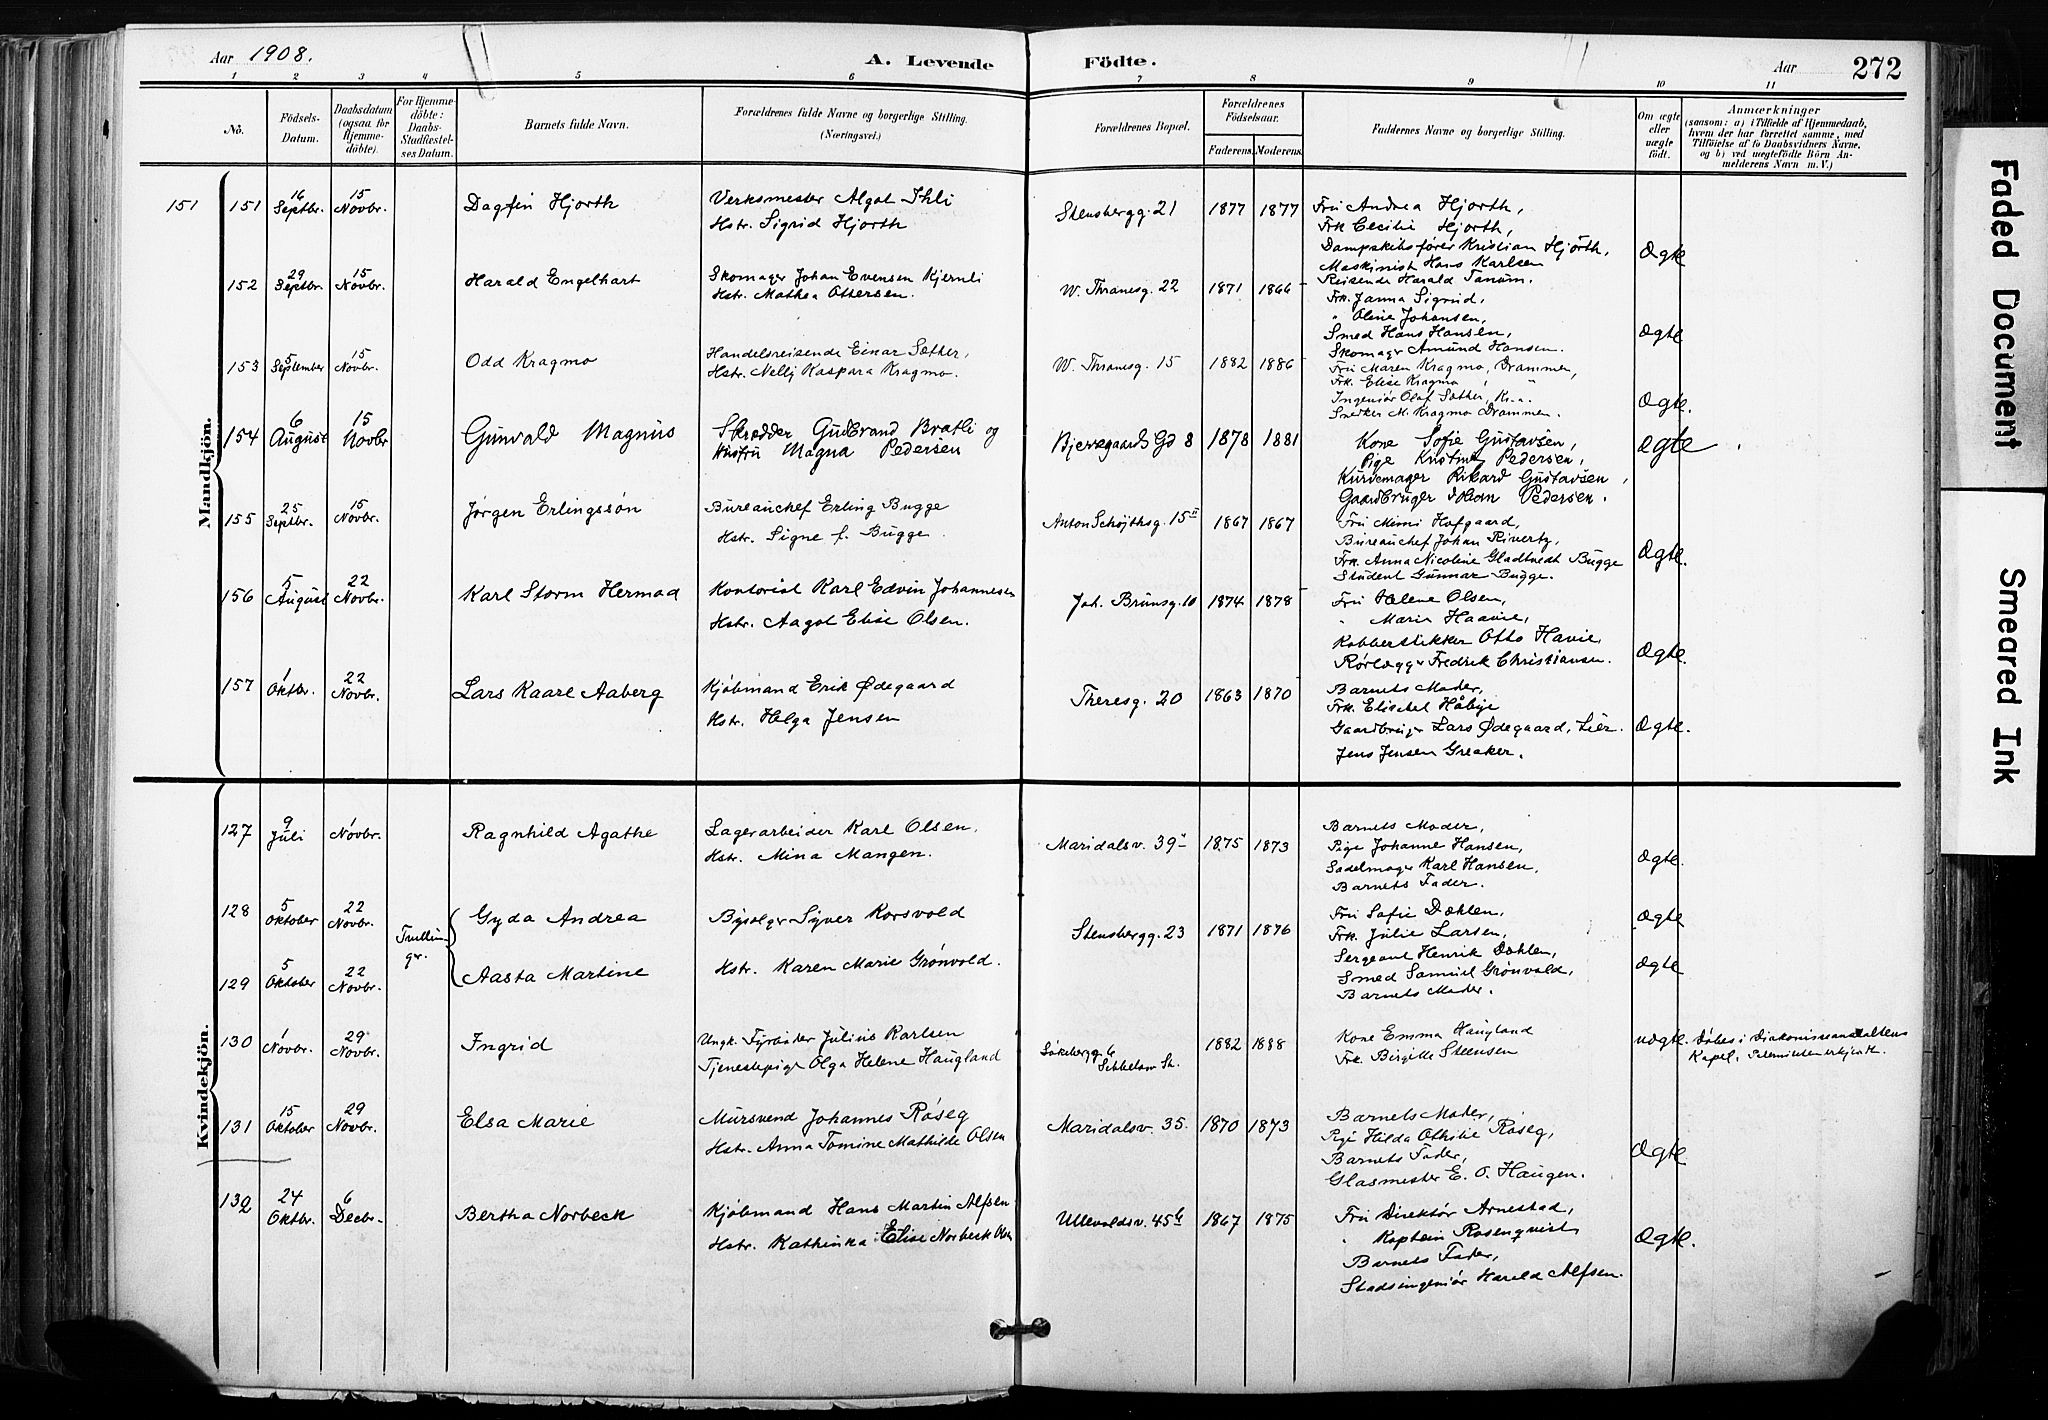 Aar 1908.
A. Levende Födte.
Aar
272
1 2 3 4 5 6 7 8 9 10 11
No.
Födsels-Datum.
Daabsdatum (ogsaa for Hjemme-döbte).
For Hjemme-döbte: Daabs-Stadfæstel-ses Datum.
Barnets fulde Navn.
Forældrenes fulde Navne og borgerlige Stilling. (Næringsvei.)
Forældrenes Bopæl.
Forældrenes Födselsaar.
Faderens. Moderens.
Faddernes Navne og borgerlige Stilling.
Om ægte eller uægte födt.
Anmærkninger
(saasom: a) i Tilfælde af Hjemmedaab, hvem der har forrettet samme, med Tilföielse af to Daabsvidners Navne, og b) ved uægtefödte Börn An-melderens Navn m. V.)
Mandkjön.
151 151 16 Septbr. 15 Novbr. Dagfin Hjorth
Verksmester Algot Ihli
Hstr. Sigrid Hjorth
Stensbergg. 21 1877 1877
Fru Andrea Hjorth,
Frk Cecilie Hjorth,
Dampskibsfører Kristian Hjorth,
Maskinist Hans Karlsen
Ægte
152 29 Septbr. 15 Novbr. Harald Engelhart
Skomager Johan Evensen Kjernli
Hstr. Mathea Ottersen.
W. Thranesg. 22 1871 1866
Reisende Harald Tanum.
Frk. Janna Sigrud,
" Oline Johansen,
Smed Hans Hansen,
Skomagr Amund Hansen.
Ægte
153 5 September 15 Novbr. Odd Kragmo
Handelsreisende Einar Sæther,
Hstr. Nelly Kaspara Kragmo.
W. Thranesg. 15 1882 1886
Fru Maren Kragmo, Drammen,
Frk. Elise Kragmo, "
Ingeniør Olaf Sæther, Kr.a.
Snedker M. Kragmo Drammen.
Ægte.
154 6 August 15 Novbr Gunvald Magnus
Skrædder Gudbrand Bratli og
Hustru Magna Pedersen
Bjerregaards Gd 8 1878 1881
Kone Sofie Gustavsen,
Pige Kristine Pedersen,
Kurvemager Rikard Gustavsen,
Gaardbruger Johan Pedersen.
Ægte
155 25 Septbr. 15 Novbr. Jørgen Erlingssøn
Bureauchef Erling Bugge
Hstr. Signe f. Bugge.
Anton Schøjthsg. 15 II 1867 1867
Fru Mimi Hofgaard,
Bureauchef Johan Rivertz,
Frk. Anna Nicoline Gladtvedt Bugge
Student Gunnar Bugge.
Ægte.
156 5 August 22 Novbr. Karl Storm Hermod
Kontorist Karl Edvin Johannesen
Hstr. Aagot Elise Olsen.
Joh. Brunsg. 10 1874 1878
Fru Helene Olsen,
" Marie Haavie,
Kobberstikker Otto Havie,
Rørlæggr Fredrik Christiansen.
Ægte.
157 Oktbr. 22 Novbr. Lars Kaare Aaberg
Kjøbmand Erik Ødegaard
Hstr. Helga Jensen
Theresg. 20 1863 1870
Barnets Moder,
Frk. Elisabet
Gaardbrugr Lars Ødegaard, Lier.
Jens Jensen Greaker.
Ægte.
Kvindekjön.
127 9 Juli 1 Novbr. Ragnhild Agathe
Lagerarbeider Karl Olsen.
Hstr. Mina Mangen.
Maridalsv. 39 1875 1873
Barnets Moder,
Pige Johanne Hansen,
Sadelmagr Karl Hansen,
Barnets Fader.
Ægte.
128 5 Oktober 22 Novbr. Tvillinger. Gyda Andrea
Byselgr Syver Korsvold
Stensbergg. 23 1871 1876
Fru Sofie Dæhlen,
Frk. Julie Larsen,
Ægte
129 5 Oktober 22 Novbr. Aasta Martine
Hstr. Karen Marie Grønvold.
Sergeant Henrik Dæhlen,
Smed Samuel Grønvold,
Barnets Moder.
Ægte
130 1 Novbr. 29 Novbr. Ingrid
Ungk. Fyrbøder Julius Karlsen
Tjenestepige Olga Helene Haugland
1882 1888
Kone Emma Haugland
Frk. Birgitte Steensen
uægte. Døbes i Diakonisseanstaltens
Kapel.
131 15 Oktober 29 Novbr. Elsa Marie
Mursvend Johannes Røseg
Hstr. Anna Tomine Mathilde Olsen
Maridalsv. 35. 1870 1873
Barnets Moder,
Pige Hilda Othilie Røseg,
Barnets Fader,
Glasmester E. O. Haugen.
Ægte
132 24 Oktbr. 6 Decbr. Bertha Norbeck
Kjøbmand Hans Martin Alfsen
Hstr. Kathinka Elise Norbeck Olsen
Ullevoldsv. 45b 1867 1875
Fru Direktør Arnestad,
" Kaptein Rosenqvist,
Barnets Fader,
Stadsingeniør Harald Alfsen.
Ægte.
Faded Document
Smeared Ink